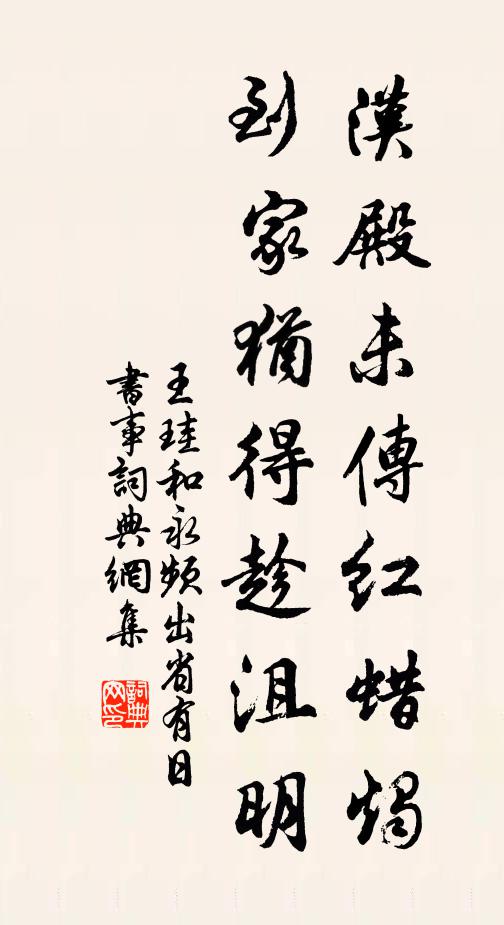 漢殿未傳紅蜡燭
到家猶得趁沮明
王珪和永頻出省有日
書事詞典網集
詞典網印